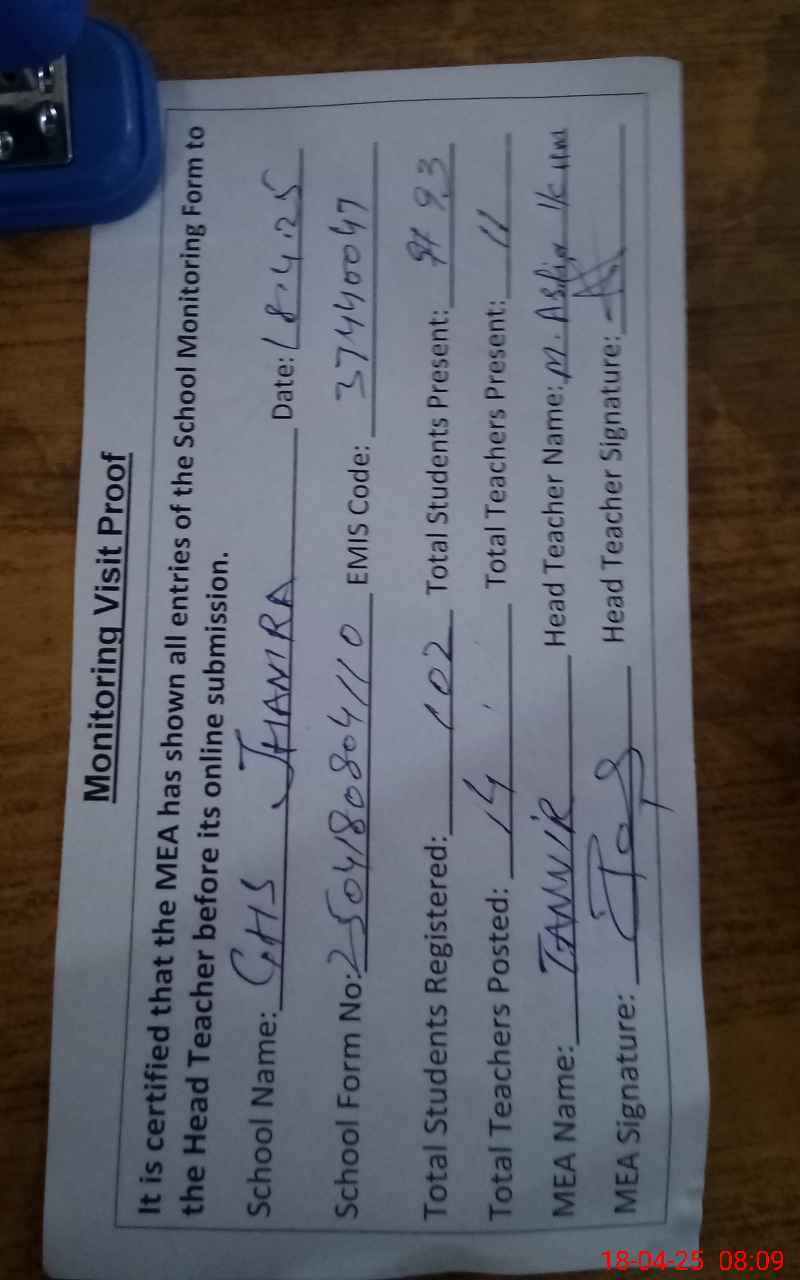 Monitoring Visit Proof
It is certified that the MEA has shown all entries of the School Monitoring Form to
the Head Teacher before its online submission.
School Name: GHS JHANIRA Date: 18.4.25
School Form No: 2504180804110 EMIS Code: 37440047
Total Students Registered: 102 Total Students Present: 93
Total Teachers Posted: 14 Total Teachers Present: 11
MEA Name: TANWIR Head Teacher Name: M. Asfiar
MEA Signature: Head Teacher Signature:
18-04-25 08:09